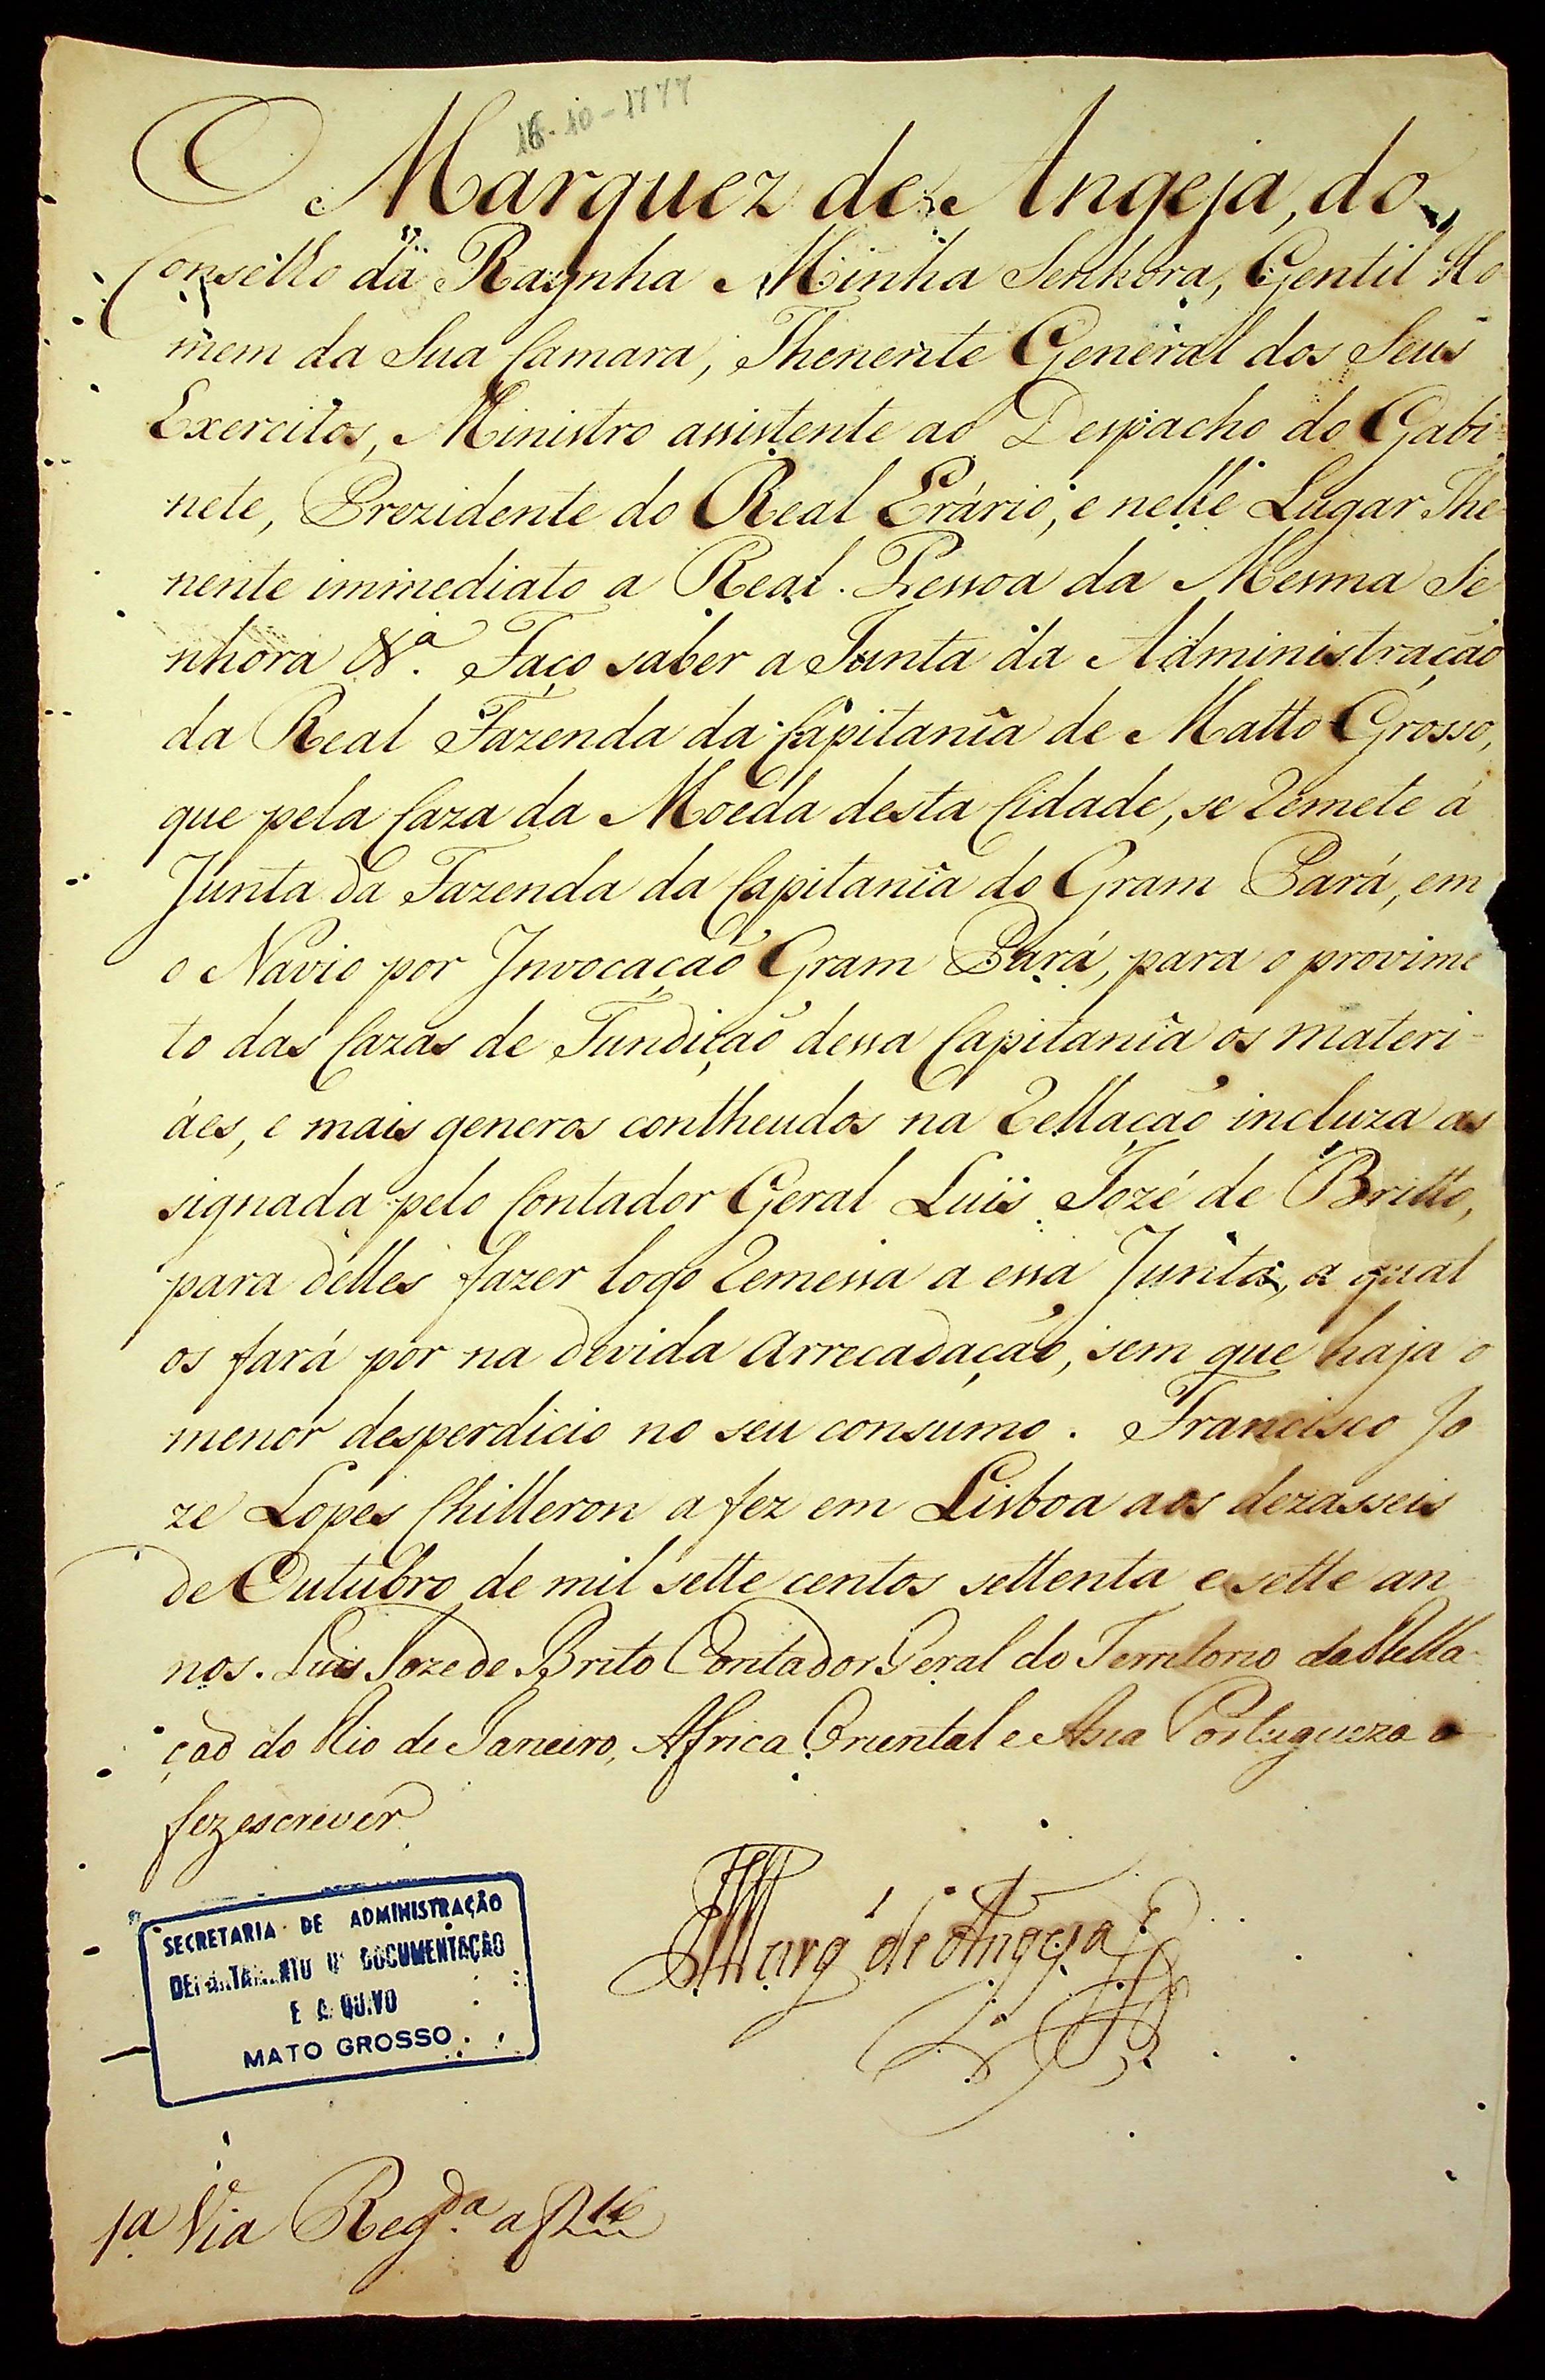 16-10-1777
O Marquez de Angeja, do
Conselho da Raynha Minha Senhora, Gentil Ho
mem da Sua Camara, Thenente General dos Seus
Exercitos, Ministro assistente ao Despacho do Gabi
nete, Prezidente do Real Erário, e nelle Lugar The
nente immediato a Real Pessoa da Mesma Se
nhora &.ª Faço saber a Junta da Administração
da Real Fazenda da Capitanîa de Matto Grosso,
que pela Caza da Moéda desta Cidade, se remete á
Junta da Fazenda da Capitanîa do Gram Pará, em
o Navio por Invocação Gram Pará, para o provime
to das Cazas de Fundição dessa Capitanîa os materi-
áes, e mais generos contheudos na rellação incluza as
signada pelo Contador Geral Luis Jozé de Britto,
para delles fazer logo remessa a essa Junta, a qual
os fará por na devida arrecadação, sem que haja o
menor desperdicio no seu consumo. Francisco Jo
ze Lopes Chilleron a fez em Lisboa aos dezasseis
de Outubro de mil sette centos settenta e sette an
nos. Luis Joze de Brito Contador Geral do Territorio da Rella-
ção do Rio de Janeiro, Africa Oriental e Asia Portugueza a
fez escrever
Marq de Angeja
SECRETARIA DE ADMINISTRAÇÃO
DEPARTAMENTO DE DOCUMENTAÇÃO
E ARQUIVO
MATO GROSSO
1ª Via Reg.da a f